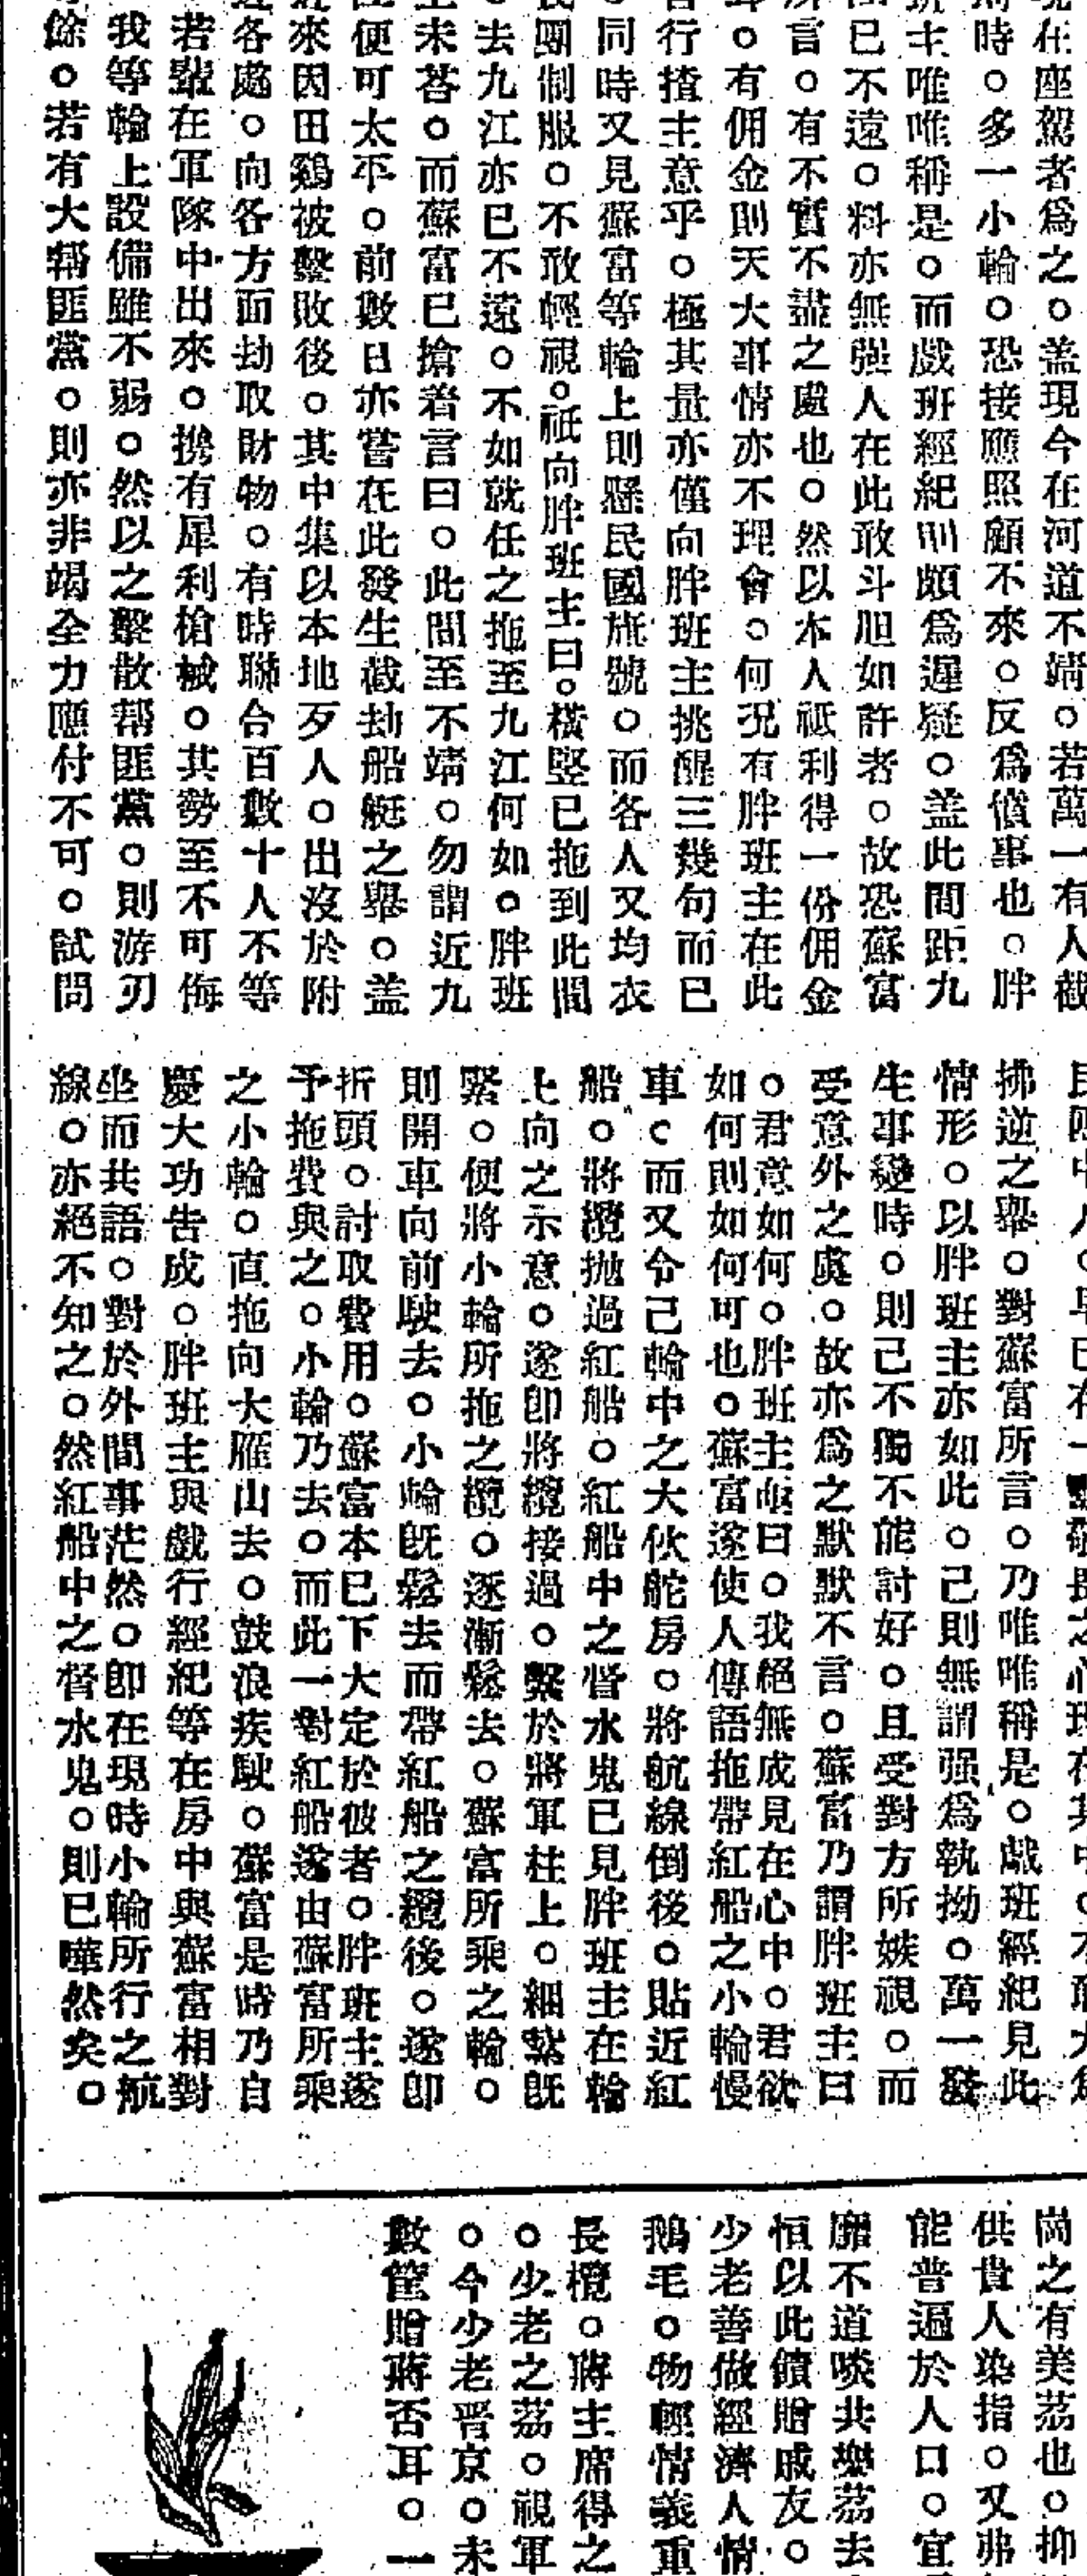 座駕者爲之。盖現今在河道不靖。若萬一有人截
時。多一小輪。恐接應照顧不來。反爲僨事也。胖
班主唯唯稱是。而戲班經紀則頗爲遲疑。盖此間距九
已不遠。料亦無强人在此敢斗胆如許者。故恐蘇富
所言。有不實不盡之處也。然以本人祗利得一份佣金
耳。有佣金則天大事情亦不理會。何况有胖班主在此
行揸主意乎。極其量亦僅向胖班主挑醒三幾句而已
。同時又見蘇富等輪上則懸民國旗號。而各人又均衣
團制服。不敢輕視。祗向胖班主曰。橫竪已拖到此間
。去九江亦已不遠。不如就任之拖至九江何如。胖班
主未答。而蘇富已搶着言曰。此間至不靖。勿謂近九
便可太平。前數日亦嘗在此發生截刦船艇之舉。盖
近來因田鷄被擊敗後。其中集以本地歹人。出沒於附
近各處。向各方面刦取財物。有時聯合百數十人不等
若輩在軍隊中出來。携有犀利槍械。其勢至不可侮
我等輪上設備雖不弱。然以之擊散帮匪黨。則游刃
餘。若有大幫匪黨。則亦非竭全力應付不可。試問
拂逆之舉。對蘇富所言。乃唯唯稱是。戲班經紀見此
情形。以胖班主亦如此。己則無謂强爲執拗。萬一發
生事變時。則己不獨不能討好。且受對方所嫉視。而
受意外之處。故亦爲之默默不言。蘇富乃謂胖班主曰
。君意如何。胖班主亟曰。我絕無成見在心中。君欲
如何則如何可也。蘇富遂使人傳語拖帶紅船之小輪慢
車。而又令己輪中之大伙舵房。將航線倒後。貼近紅
船。將纜拋過紅船。紅船中之督水鬼已見胖班主在輪
上向之示意。遂卽將纜接過。繫於將軍柱上。細紮旣
緊。便將小輪所拖之纜。逐漸鬆去。蘇富所乘之輪。
則開車向前駛去。小輪旣鬆去而帶紅船之纜後。遂卽
折頭。討取費用。蘇富本已下大定於彼者。胖班主遂
予拖費與之。小輪乃去。而此一對紅船遂由蘇富所乘
之小輪。直拖向大雁山去。鼓浪疾駛。蘇富是時乃自
慶大功告成。胖班主與戲行經紀等在房中與蘇富相對
坐而共語。對於外間事茫然。卽在現時小輪所行之航
線。亦絕不知之。然紅船中之督水鬼。則已嘩然矣。
崗之有美荔也。抑
供貴人染指。又弗
能普遍於人口。宜
靡不道啖共樂荔去
恒以此饋贈戚友。
少老善做經濟人情
鵝毛。物輕情義重
長欖。蔣主席得之
。少老之荔。視軍
。今少老晋京。未
數筐贈蔣否耳。一